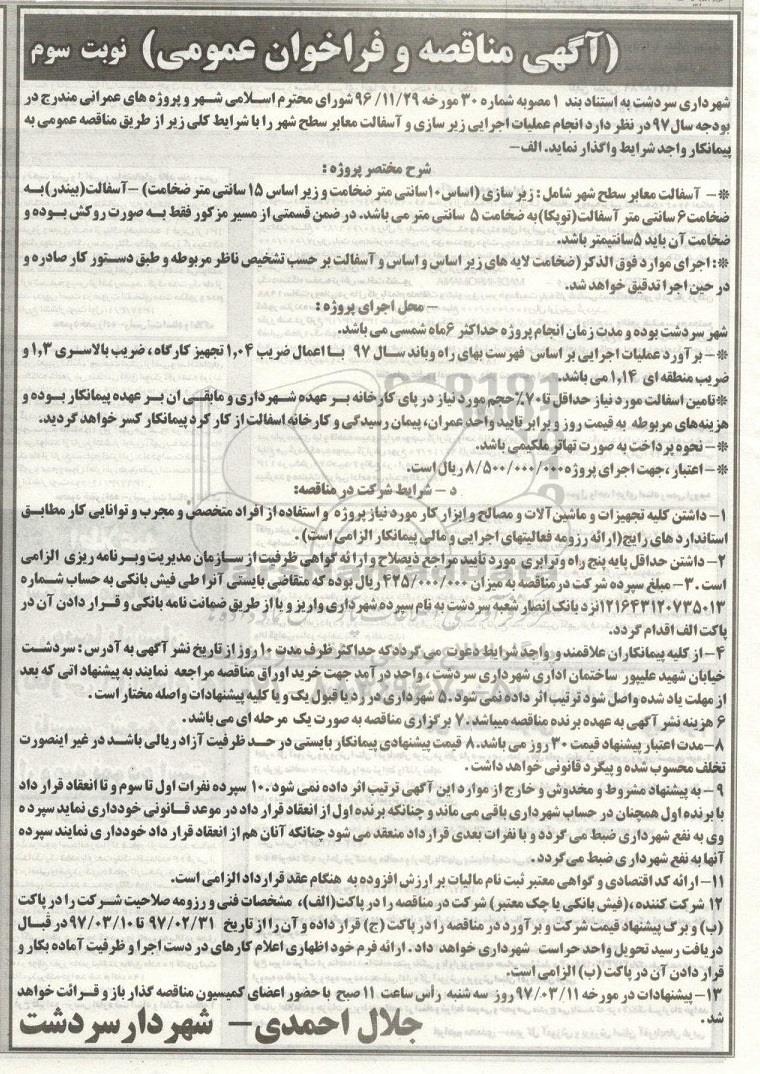 (آگهی مناقصه و فراخوان عمومی) نوبت سوم
شهرداری سردشت به استناد بند ۱ مصوبه شماره ۳۰ مورخه ۹۶/۱۱/۲۹ شورای محترم اسلامی شهر و پروژه های عمرانی مندرج در
بودجه سال ۹۷ در نظر دارد انجام عملیات اجرایی زیر سازی و آسفالت معابر سطح شهر را با شرایط کلی زیر از طریق مناقصه عمومی به
پیمانکار واجد شرایط واگذار نماید. الف-
شرح مختصر پروژه :
*- آسفالت معابر سطح شهر شامل : زیر سازی (اساس۱۰سانتی متر ضخامت و زیر اساس ۱۵ سانتی متر ضخامت) -آسفالت(بیندر)به
ضخامت۶ سانتی متر آسفالت(توپکا)به ضخامت ۵ سانتی متر می باشد. در ضمن قسمتی از مسیر مزکور فقط به صورت روکش بوده و
ضخامت آن باید ۵سانتیمتر باشد.
*: اجرای موارد فوق الذکر(ضخامت لایه های زیر اساس و اساس و آسفالت بر حسب تشخیص ناظر مربوطه و طبق دستور کار صادره و
در حین اجرا تدقیق خواهد شد.
- محل اجرای پروژه :
شهر سردشت بوده و مدت زمان انجام پروژه حداکثر ۶ماه شمسی می باشد.
*- برآورد عملیات اجرایی بر اساس فهرست بهای راه وباند سال ۹۷ با اعمال ضریب ۱,۰۴ تجهیز کارگاه ، ضریب بالاسری ۱,۳ و
ضریب منطقه ای ۱,۱۴ می باشد.
*تامین اسفالت مورد نیاز حداقل تا۷۰٪حجم مورد نیاز در پای کارخانه بر عهده شهرداری و مابقی ان بر عهده پیمانکار بوده و
هزینه‌های مربوطه به قیمت روز و برابر تایید واحد عمران، پیمان رسیدگی و کارخانه اسفالت از کار کرد پیمانکار کسر خواهد گردید.
*- نحوه پرداخت به صورت تهاتر ملکیمی باشد.
*- اعتبار ،جهت اجرای پروژه ۸/۵۰۰/۰۰۰/۰۰۰ ریال است.
د - شرایط شرکت در مناقصه:
۱- داشتن کلیه تجهیزات و ماشین آلات و مصالح و ابزار کار مورد نیاز پروژه و استفاده از افراد متخصص و مجرب و توانایی کار مطابق
استاندارد های رایج(ارائه رزومه فعالیتهای اجرایی و مالی پیمانکار الزامی است).
۲- داشتن حداقل پایه پنج راه وترابری مورد تأیید مراجع ذیصلاح و ارائه گواهی ظرفیت از سازمان مدیریت وبرنامه ریزی الزامی
است .۳- مبلغ سپرده شرکت در مناقصه به میزان ۴۲۵/۰۰۰/۰۰۰ ریال بوده که متقاضی بایستی آنرا طی فیش بانکی به حساب شماره
۱۲۱۶۴۳۱۲۰۷۳۵۰۱۳نزد بانک انصار شعبه سردشت به نام سپرده شهرداری واریز و یا از طریق ضمانت نامه بانکی و قرار دادن آن در
پاکت الف اقدام گردد.
۴- از کلیه پیمانکاران علاقمند و واجد شرایط دعوت می گرددکه حداکثر ظرف مدت ۱۰ روز از تاریخ نشر آگهی به آدرس : سردشت
خیابان شهید علیپور ساختمان اداری شهرداری سردشت ، واحد درآمد جهت خرید اوراق مناقصه مراجعه نمایند به پیشنهاد اتی که بعد
از مهلت یاد شده واصل شود ترتیب اثر داده نمی شود .۵ شهرداری در رد یا قبول یک و یا کلیه پیشنهادات واصله مختار است .
۶ هزینه نشر آگهی به عهده برنده مناقصه میباشد.۷ برگزاری مناقصه به صورت یک مرحله ای می باشد .
۸-مدت اعتبار پیشنهاد قیمت ۳۰ روز می باشد.۸ قیمت پیشنهادی پیمانکار بایستی در حد ظرفیت آزاد ریالی باشد در غیر اینصورت
تخلف محسوب شده و پیگرد قانونی خواهد داشت .
۹- به پیشنهاد مشروط و مخدوش و خارج از موارد این آگهی ترتیب اثر داده نمی شود .۱۰ سپرده نفرات اول تا سوم و تا انعقاد قرار داد
با برنده اول همچنان در حساب شهرداری باقی می ماند و چنانکه برنده اول از انعقاد قرار داد در موعد قانونی خودداری نماید سپرده
وی به نفع شهرداری ضبط می گردد و با نفرات بعدی قرارداد منعقد می شود چنانکه آنان هم از انعقاد قرار داد خودداری نمایند سپرده
آنها به نفع شهرداری ضبط می گردد .
۱۱- ارائه کد اقتصادی و گواهی معتبر ثبت نام مالیات بر ارزش افزوده به هنگام عقد قرار داد الزامی است.
۱۲ شرکت کننده ،(فیش بانکی یا چک معتبر) شرکت در مناقصه را در پاکت(الف)، مشخصات فنی و رزومه صلاحیت شرکت را در پاکت
(ب) و برگ پیشنهاد قیمت شرکت و برآورد در مناقصه را در پاکت (ج) قرار داده و آن را از تاریخ ۹۷/۰۲/۳۱ تا ۹۷/۰۳/۱۰ در قبال
دریافت رسید تحویل واحد حراست شهرداری خواهد داد . ارائه فرم خود اظهاری اعلام کارهای در دست اجرا و ظرفیت آماده بکار و
قرار دادن آن در پاکت (ب) الزامی است.
۱۳- پیشنهادات در مورخه ۹۷/۰۳/۱۱ روز سه شنبه رأس ساعت ۱۱ صبح با حضور اعضای کمیسیون مناقصه گذار باز و قرائت خواهد
شد .
جلال احمدی - شهردار سردشت